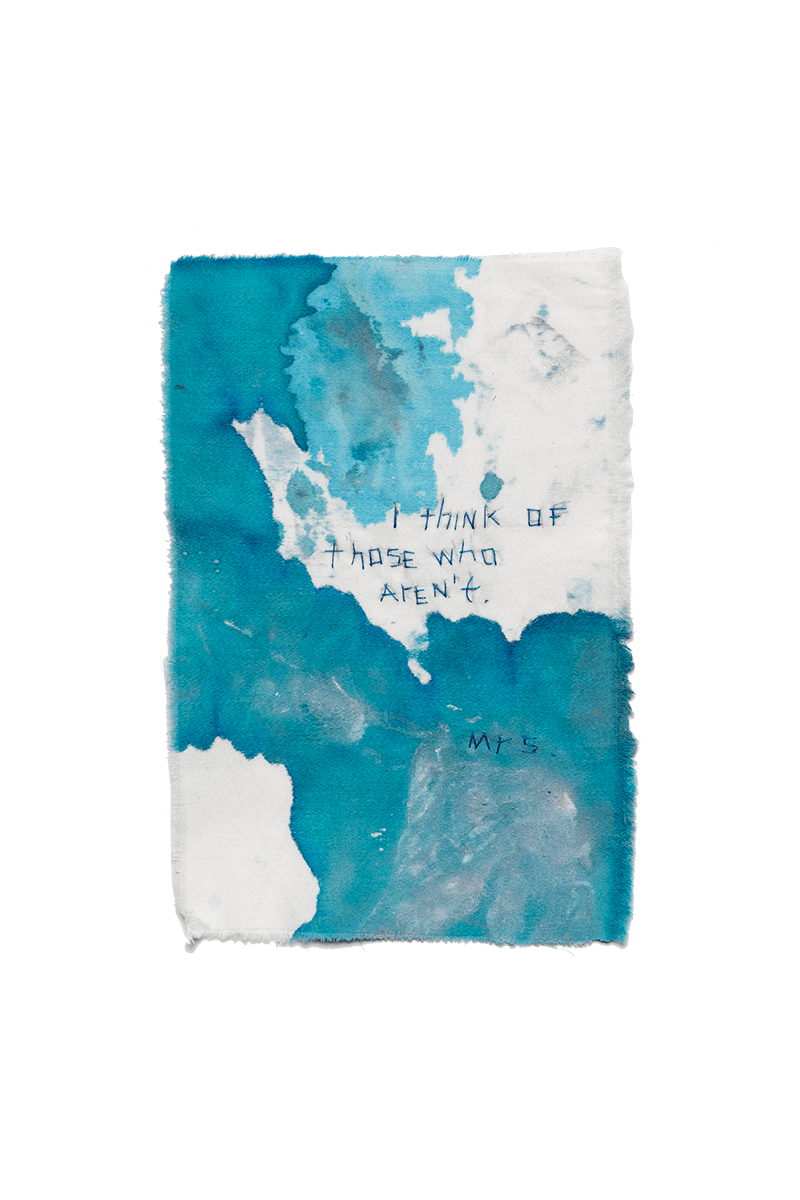 I thINK OF
thOSE WHO
ArEN't.
Mr S.